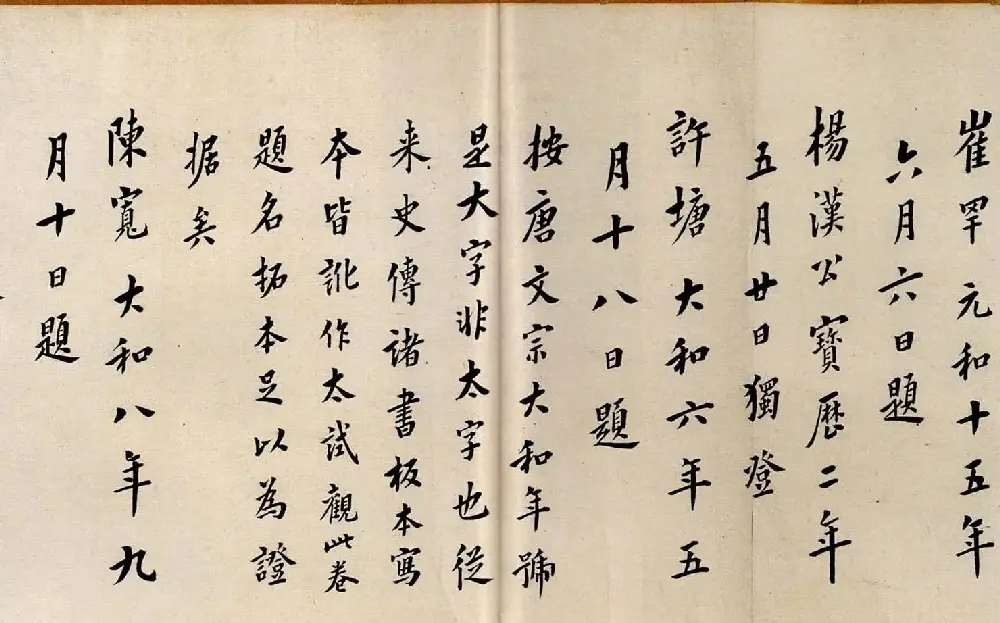 崔罕元和十五年
六月六日題
楊漢公寶歷二年
五月廿日獨登
許塘大和六年五
月十八日題
按唐文宗大和年號
是大字非太字也從
来史傳諸書板本寫
本皆訛作太試觀此卷
題名拓本足以為證
据矣
陳寬大和八年九
月十日題